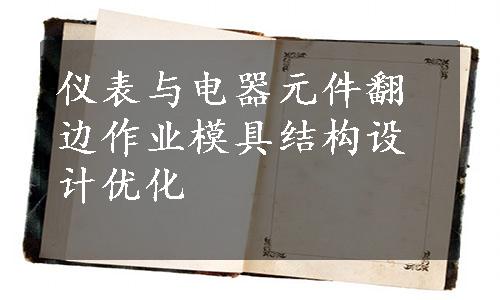 仪表与电器元件翻
边作业模具结构设
计优化